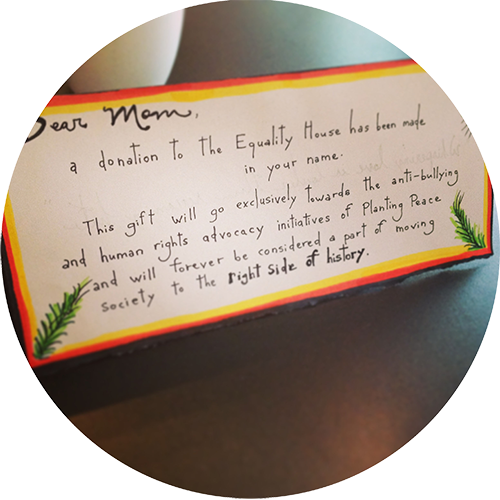 Dear Mom,
a donation to the Equality House has been made
in your name.
This gift will go exclusively towards the anti-bullying
and human rights advocacy initiatives of Planting Peace
and will forever be considered a part of moving
society to the right side of history.